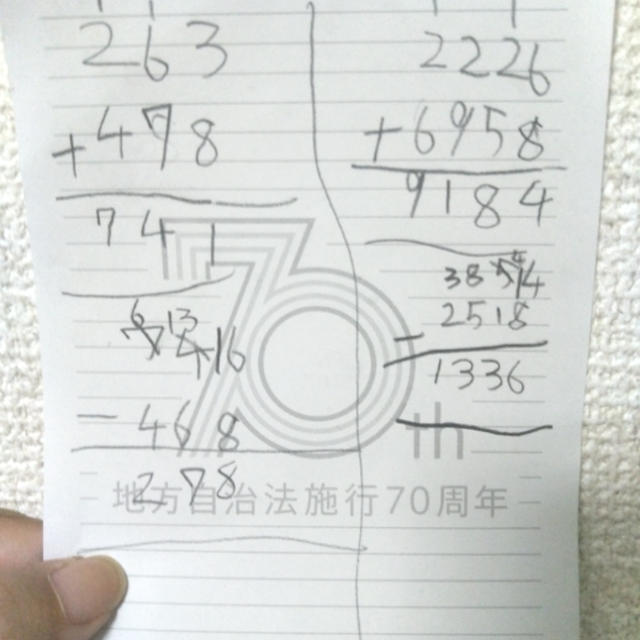 1 1
263
+478
741
6 13
7 4 16
-468
278
1 1
2226
+6958
9184
38514
-2518
1336
70th
地方自治法施行70周年